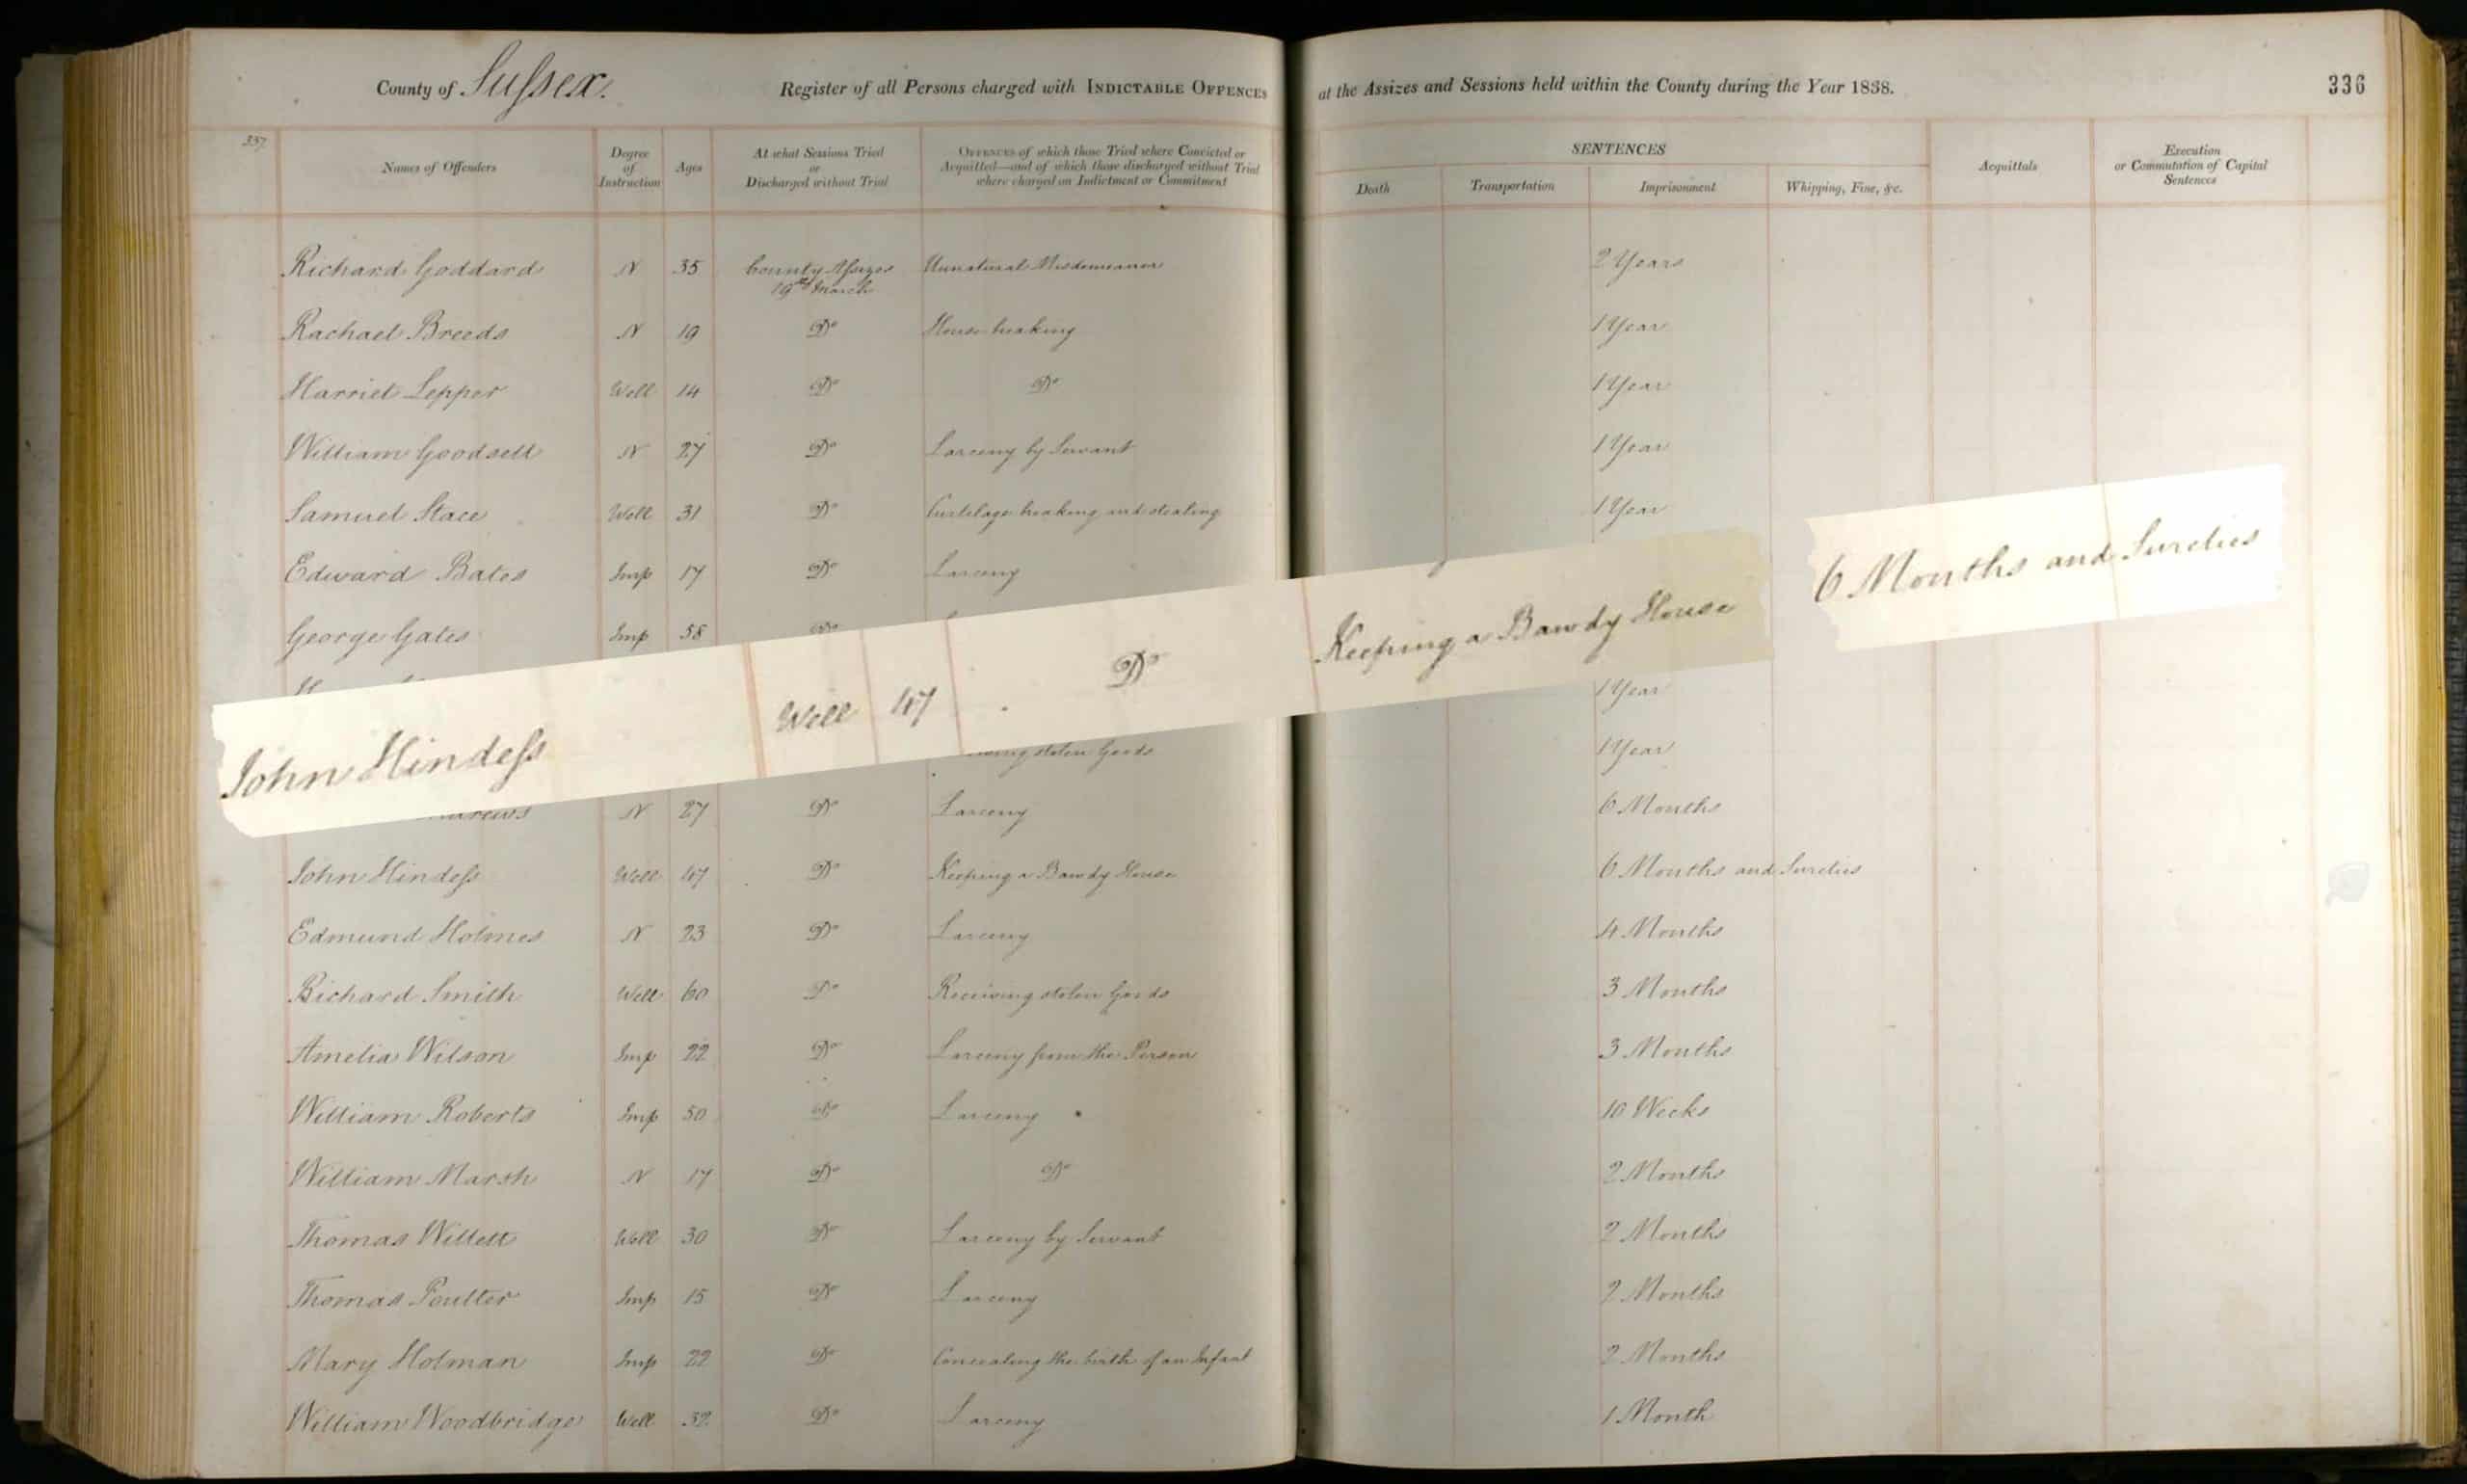 County of Sussex.
Register of all Persons charged with INDICTABLE OFFENCES at the Assizes and Sessions held within the County during the Year 1838.
336
337
Names of Offenders
Degree of Instruction
Ages
At what Sessions Tried or Discharged without Trial
OFFENCES of which those Tried where Convicted or Acquitted—and of which those discharged without Trial where charged on Indictment or Commitment
SENTENCES
Death
Transportation
Imprisonment
Whipping, Fine, &c.
Acquittals
Execution or Commutation of Capital Sentences
Richard Goddard N 35 County Assizes 19th March Unnatural Misdemeanor 2 Years
Rachael Breeds N 19 Do House breaking 1 Year
Harriet Lepper Well 14 Do Do 1 Year
William Goodsell N 27 Do Larceny by Servant 1 Year
Samuel Stace Well 31 Do Curtilage breaking and stealing 1 Year
Edward Bates Imp 17 Do Larceny
George Gates Imp 58 Do
John Hindess Well 47 Do Keeping a Bawdy House 6 Months and Sureties
1 Year
stolen Goods 1 Year
N 27 Do Larceny 6 Months
John Hindess Well 47 Do Keeping a Bawdy House 6 Months and Sureties
Edmund Holmes N 23 Do Larceny 4 Months
Richard Smith Well 60 Do Receiving stolen Goods 3 Months
Amelia Wilson Imp 22 Do Larceny from the Person 3 Months
William Roberts Imp 50 Do Larceny 10 Weeks
William Marsh N 17 Do Do 2 Months
Thomas Willett Well 30 Do Larceny by Servant 2 Months
Thomas Poulter Imp 15 Do Larceny 2 Months
Mary Holman Imp 22 Do Concealing the birth of an Infant 2 Months
William Woodbridge Well 32 Do Larceny 1 Month